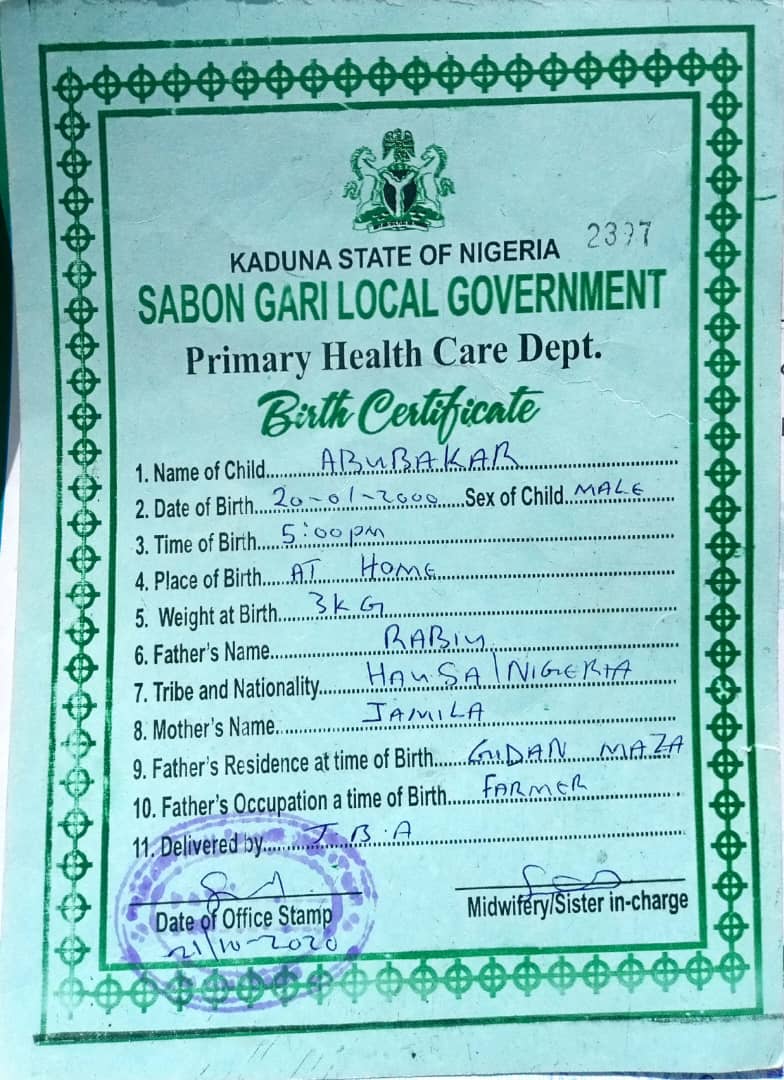 2397
KADUNA STATE OF NIGERIA
SABON GARI LOCAL GOVERNMENT
Primary Health Care Dept.
Birth Certificate
1. Name of Child..........ABUBAKAR..........
2. Date of Birth....20-01-2000....Sex of Child..MALE......
3. Time of Birth....5:00pm..........
4. Place of Birth.....AT HOME..........
5. Weight at Birth......3KG..........
6. Father's Name..........RABIU..........
7. Tribe and Nationality..........HAUSA\NIGERIA
8. Mother's Name..........JAMILA..........
9. Father's Residence at time of Birth......GIDAN MAZA
10. Father's Occupation a time of Birth......FARMER..........
11. Delivered by..........B.A..........
Date of Office Stamp
21/10-2020
Midwifery/Sister in-charge